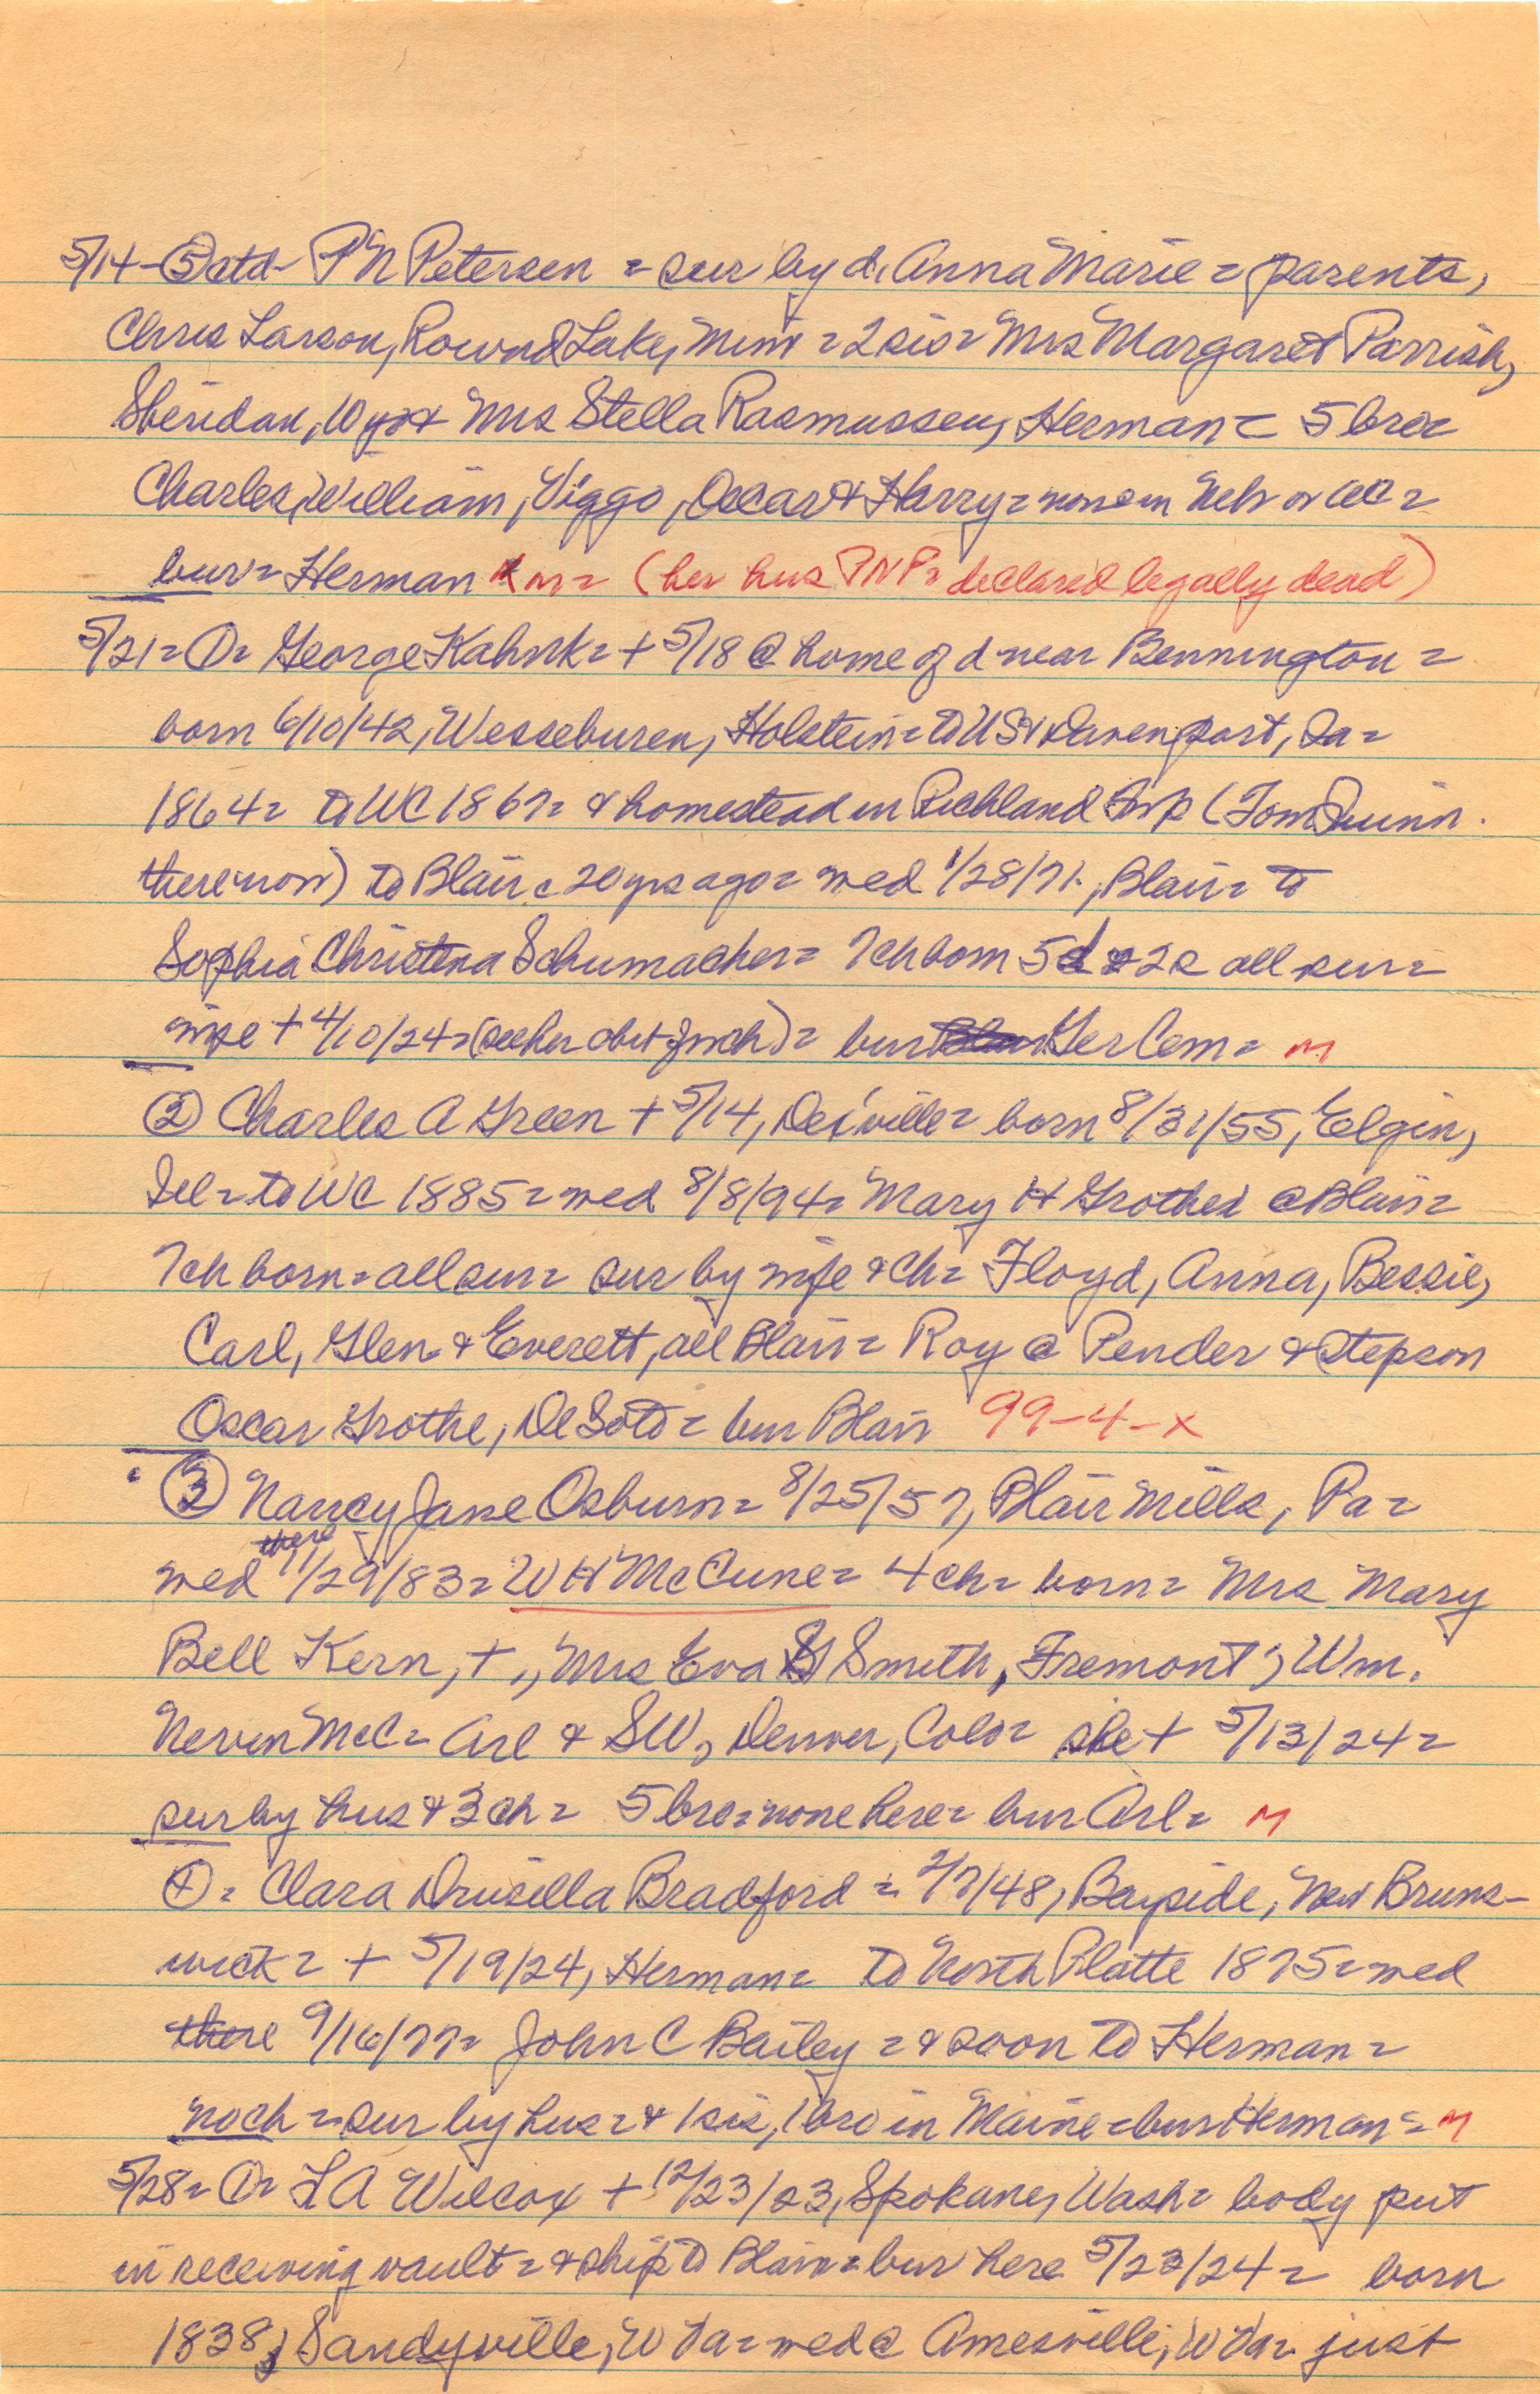 5/14-⑤ctd- PN Petersen = sur by d, Anna Marie = parents,
Chris Larson, Round Lake, Minn = 2 sis = Mrs Margaret Parrish,
Sheridan, Wyo & Mrs Stella Rasmussen, Herman = 5 bro=
Charles, William, Viggo, Oscar & Harry = none in Neb or WC =
bur = Herman m = (her hus PNP = declared legally dead)
5/21 = ① = George Kahnk = + 5/18 @ home of d near Bennington =
born 6/10/42, Wesseburen, Holstein = to US & Davenport, Ia =
1864 = to WC 1867 = & homestead in Richland Twp (Tom Quinn
there now) to Blair c 20 yrs ago = med 1/28/71, Blair = to
Sophia Christena Schumacher = 7 ch born 5d & 2s all sur =
wife + 4/10/24 = (see her obit for ch) = bur Ger Cem = M
② Charles A Green + 5/14, De'ville = born 8/31/55, Elgin,
Ill = to WC 1885 = med 8/8/94 = Mary H Grothe @ Blair =
7 ch born = all sur = sur by wife & ch = Floyd, Anna, Bessie,
Carl, Glen & Everett, all Blair = Roy @ Pender & stepson
Oscar Grothe, DeSoto = bur Blair 99-4-x
③ Nancy Jane Osburn = 8/25/57, Blair Mills, Pa =
med there 11/29/83 = WH McCune = 4 ch = born = Mrs Mary
Bell Kern, +, Mrs Eva Smith, Fremont, Wm.
Nevin McC = Arl & SW, Denver, Colo = she + 5/13/24 =
sur by hus & 3 ch = 5 bro = none here = bur Arl = M
④ = Clara Drusilla Bradford = 2/7/48, Bayside, New Bruns-
wick = + 5/19/24, Herman = to North Platte 1875 = med
there 9/16/77 = John C Bailey = & soon to Herman =
no ch = sur by hus = & 1 sis, 1 bro in Maine = bur Herman = M
5/28 = ① = L A Wilcox + 12/23/23, Spokane, Wash = body put
in receiving vault = & ship to Blair = bur here 5/23/24 = born
1838, Sandyville, W Va = med @ Amesville, W Va = just